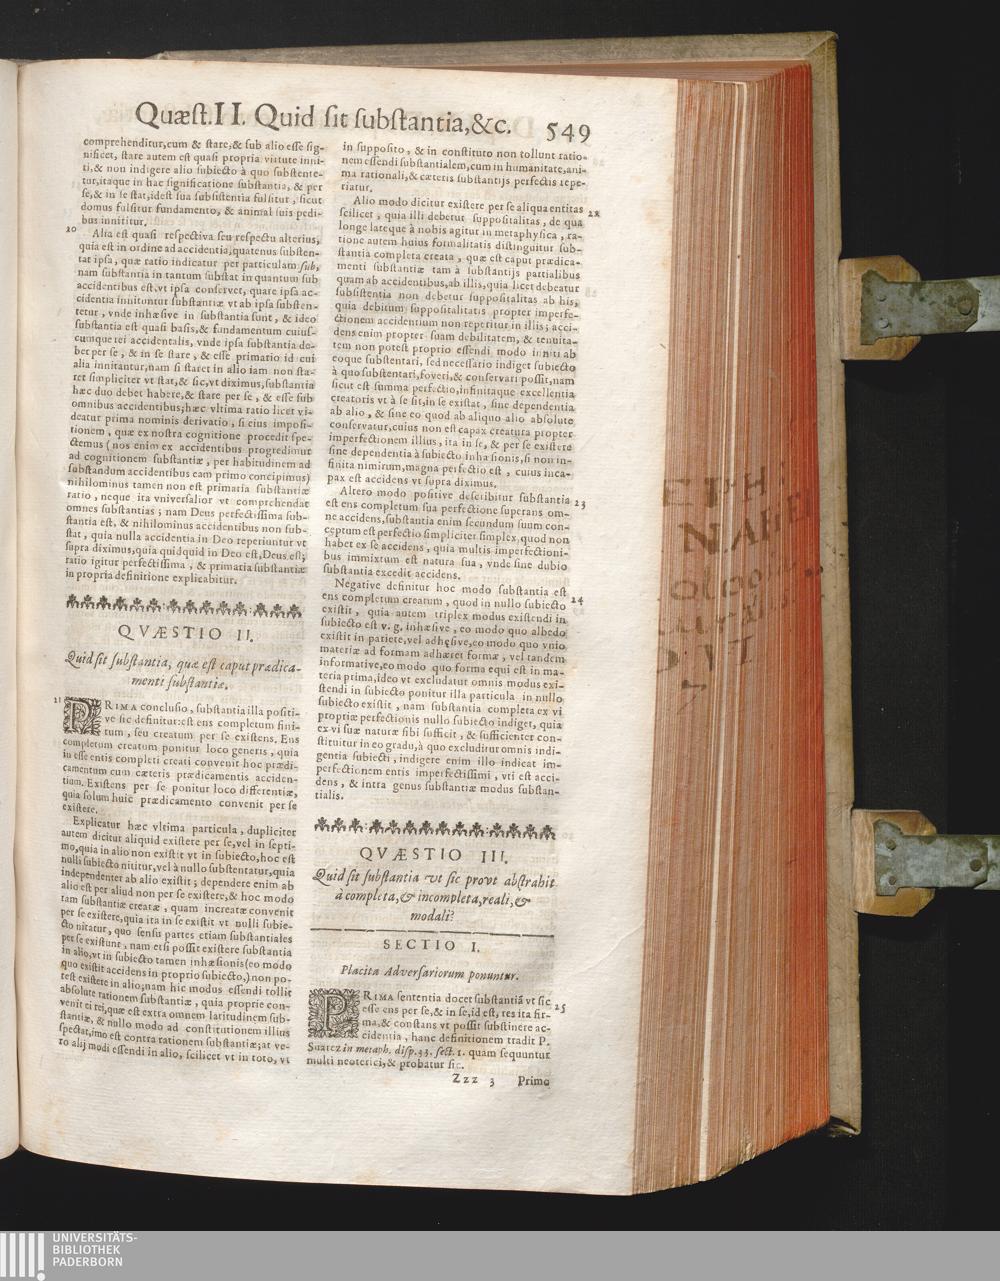 Quæst.II. Quid sit substantia,&c. 549
comprehenditur,cum & stare,& sub alio esse sig-
nificet, stare autem est quasi propria virtute inni-
ti,& non indigere alio subiecto à quo substente-
tur,itaque in hac significatione substantia, & per
se,& in se stat,idest sua subsistentia fulsitur, sicut
domus fulsitur fundamento, & animal suis pedi-
bus innititur.
20 Alia est quasi respectiva seu respectu alterius,
quia est in ordine ad accidentia,quatenus substen-
tat ipsa, quæ ratio indicatur per particulam sub,
nam substantia in tantum substat in quantum sub
accidentibus est,vt ipsa conservet, quare ipsa ac-
cidentia innituntur substantiæ vt ab ipsa substen-
tetur, vnde inhæsive in substantia sunt, & ideo
substantia est quasi basis,& fundamentum cuius-
cumque rei accidentalis, vnde ipsa substantia de-
bet per se, & in se stare, & esse primario id cui
alia innitantur,nam si staret in alio iam non sta-
ret simpliciter vt stat,& sic,vt diximus,substantia
hæc duo debet habere,& stare per se, & esse sub
omnibus accidentibus;hæc vltima ratio licet vi-
deatur prima nominis derivatio, si eius imposi-
tionem, quæ ex nostra cognitione procedit spe-
ctemus (nos enim ex accidentibus progredimur
ad cognitionem substantiæ, per habitudinem ad
substandum accidentibus eam primo concipimus)
nihilominus tamen non est primaria substantiæ
ratio, neque ita vniversalior vt comprehendat
omnes substantias; nam Deus perfectissima sub-
stantia est, & nihilominus accidentibus non sub-
stat, quia nulla accidentia in Deo reperiuntur vt
supra diximus,quia quidquid in Deo est,Deus est;
ratio igitur perfectissima, & primaria substantiæ
in propria definitione explicabitur.
QVÆSTIO II.
Quid sit substantia, quæ est caput prædica-
menti substantiæ.
21 PRIMA conclusio, substantia illa positi-
ve sic definitur:est ens completum fini-
tum, seu creatum per se existens. Ens
completum creatum ponitur loco generis, quia
in esse entis completi creati convenit hoc prædi-
camentum cum cæteris prædicamentis acciden-
tium. Existens per se ponitur loco differentiæ,
quia solum huic prædicamento convenit per se
existere.
Explicatur hæc vltima particula, dupliciter
autem dicitur aliquid existere per se,vel in septi-
mo,quia in alio non existit vt in subiecto,hoc est
nulli subiecto nititur,vel à nullo substentatur,quia
independenter ab alio existit; dependere enim ab
alio est per aliud non per se existere,& hoc modo
tam substantiæ creatæ, quam increatæ convenit
per se existere,quia ita in se existit vt nulli subie-
cto nitatur, quo sensu partes etiam substantiales
per se existunt, nam etsi possit existere substantia
in alio,vt in subiecto tamen inhæsionis(eo modo
quo existit accidens in proprio subiecto,) non po-
test existere in alio;nam hic modus essendi tollit
absolute rationem substantiæ, quia proprie con-
venit ei rei,quæ est extra omnem latitudinem sub-
stantiæ, & nullo modo ad constitutionem illius
spectat,imo est contra rationem substantiæ;at ve-
ro alij modi essendi in alio, scilicet vt in toto, vt
in supposito, & in constituto non tollunt ratio-
nem essendi substantialem,cum in humanitate,ani-
ma rationali,& cæteris substantijs perfectis repe-
riatur.
Alio modo dicitur existere per se aliqua entitas 22
scilicet, quia illi debetur suppositalitas, de qua
longe lateque à nobis agitur in metaphysica, ra-
tione autem huius formalitatis distinguitur sub-
stantia completa creata, quæ est caput prædica-
menti substantiæ tam à substantijs partialibus
quam ab accidentibus,ab illis,quia licet debeatur
subsistentia non debetur suppositalitas ab his,
quia debitum suppositalitatis propter imperfe-
ctionem accidentium non reperitur in illis; acci-
dens enim propter suam debilitatem, & tenuita-
tem non potest proprio essendi modo inniti ab
eoque substentari, sed necessario indiget subiecto
à quo substentari,foveri,& conservari possit,nam
sicut est summa perfectio,infinitaque excellentia
creatoris vt à se sit,in se existat, sine dependentia
ab alio, & sine eo quod ab aliquo alio absolute
conservatur,cuius non est capax creatura propter
imperfectionem illius, ita in se, & per se existere
sine dependentia à subiecto inhæsionis,si non in-
finita nimirum,magna perfectio est, cuius inca-
pax est accidens vt supra diximus.
Altero modo positive describitur substantia 23
est ens completum sua perfectione superans om-
ne accidens,substantia enim secundum suum con-
ceptum est perfectio simpliciter simplex,quod non
habet ex se accidens, quia multis imperfectioni-
bus immixtum est natura sua, vnde sine dubio
substantia excedit accidens.
Negative definitur hoc modo substantia est
ens completum creatum, quod in nullo subiecto 24
existit, quia autem triplex modus existendi in
subiecto est v. g. inhæsive, eo modo quo albedo
existit in pariete,vel adhęsive,eo modo quo vnio
materiæ ad formam adhæret formæ, vel tandem
informative,eo modo quo forma equi est in ma-
teria prima,ideo vt excludatur omnis modus exi-
stendi in subiecto ponitur illa particula in nullo
subiecto existit, nam substantia completa ex vi
propriæ perfectionis nullo subiecto indiget, quia
ex vi suæ naturæ sibi sufficit, & sufficienter con-
stituitur in eo gradu,à quo excluditur omnis indi-
gentia subiecti, indigere enim illo indicat im-
perfectionem entis imperfectissimi, vti est acci-
dens, & intra genus substantiæ modus substan-
tialis.
QVÆSTIO III.
Quid sit substantia vt sic provt abstrahit
à completa,& incompleta,reali,&
modali?
SECTIO I.
Placita Adversariorum ponuntur.
PRIMA sententia docet substantiã vt sic
esse ens per se,& in se,id est, res ita fir- 25
ma,& constans vt possit substinere ac-
cidentia, hanc definitionem tradit P.
Suarez in metaph. disp.33. sect.1. quam sequuntur
multi neoterici,& probatur sic.
Zzz 3 Primo
UNIVERSITÄTS-
BIBLIOTHEK
PADERBORN